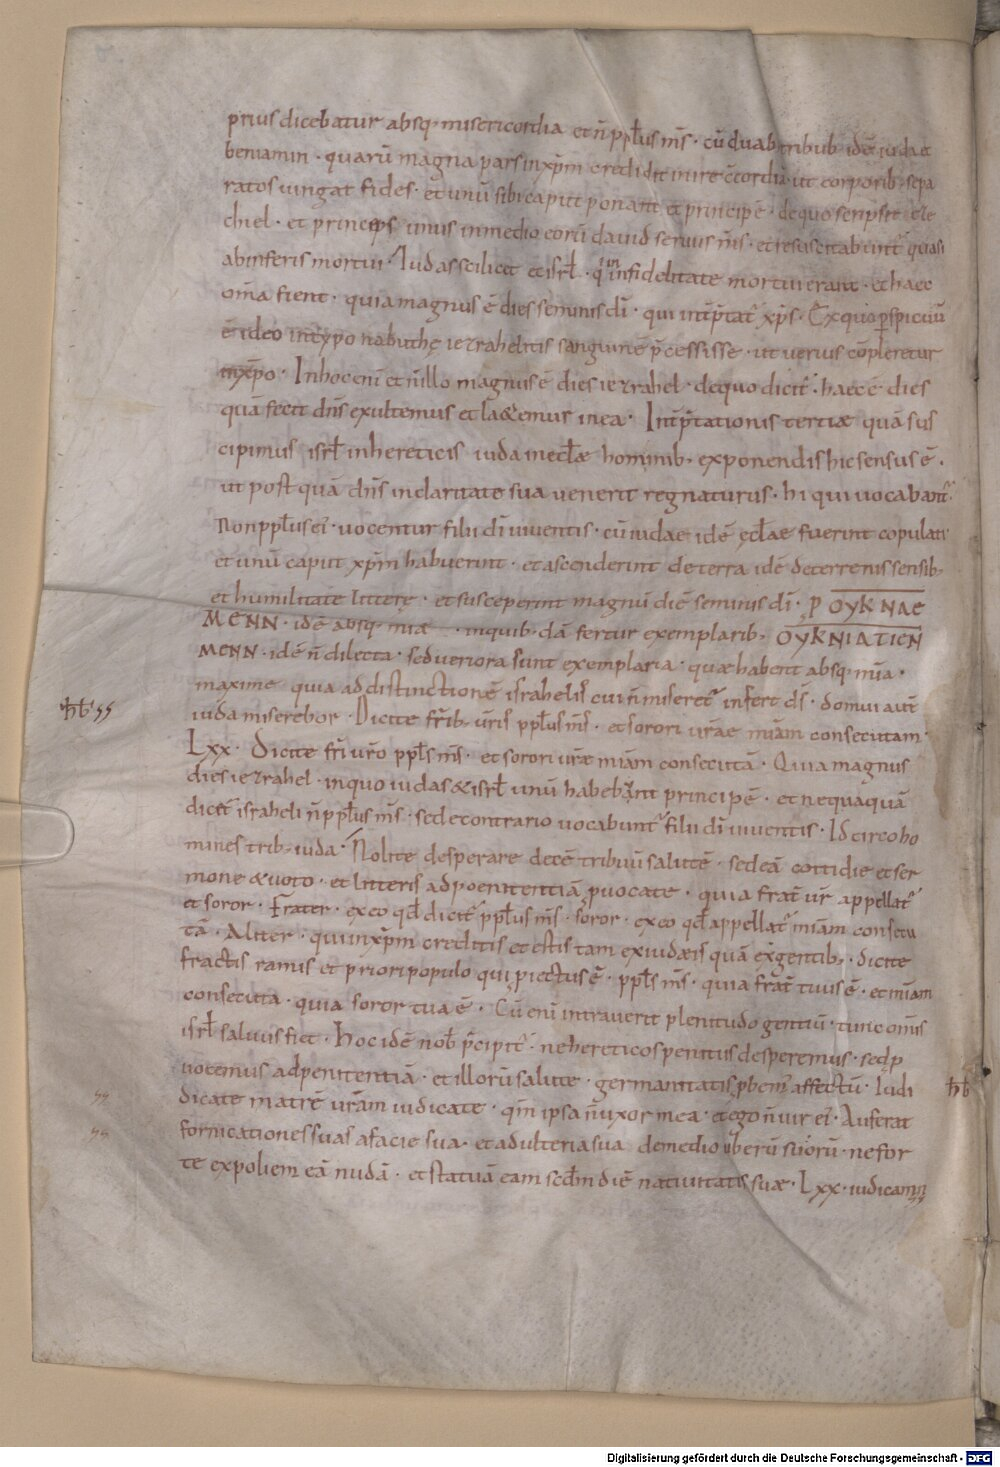 prius dicebatur absq; misericordia et n̄ pplus ms̄ · cū duab; tribub; idē iudae et
beniamin · quarū magna pars in xp̄m credidit inire c̄cordiā · ut corporib; sepa
ratos iungat fides · et unū sibi caput ponant et principē · de quo scripsit eze
chiel · et princeps unus in medio eorū dauid seruus ms̄ · et resuscitabunt᷑ quasi
ab inferis mortui · Iudas scilicet et isrł · qui in infidelitate mortui erant · et haec
om̄a fient · quia magnus ē dies seminis dī · qui int̄p̄tat᷑ xp̄s · Ex quo p̱spicuū
ē ideo in typo nabuthę iezrahelitis sanguinē p̄cessisse · ut uerius cōpleretur
in xp̄o · In hoc enī et in illo magnus ē dies iezrahel · de quo dicit᷑ · haec ē dies
quā fecit dn̄s exultemus et laetemur in ea · Int̄p̄tationis tertiae quā sus
cipimus isrł in hereticis iuda in ecłae hominib; exponendis hic sensus ē ·
ut postquā dn̄s in claritate sua uenerit regnaturus · hi qui uocabant᷑
Non pplus ei᷑ · uocentur filii dī uiuentis · cū iudae idē ęcłae fuerint copulati
et unū caput xp̄m habuerint · et ascenderint de terra idē de terrenis sensib;
et humilitate litterę · et susceperint magnū diē seminis dī · P ΟΥΚ ΝΑΕ
ΜΕΝΝ · idē absq; mīa · inquib;dā fertur exemplarib; ΟΥΚ ΝΙΑΤΙΕΝ
ΜΕΝΝ · idē n̄ dilecta · sed ueriora sunt exemplaria · quae habent absq; mīa ·
maxime quia ad distinctionē israhelis cui n̄ miseret᷑ infert dś · domui aut̄
iuda miserebor · Dicite frib; uris pplus ms̄ · et sorori urae miam consecutam ·
hb ss
Lxx · Dicite fri uro ppls ms̄ · et sorori urae miam consecutā · Quia magnus
dies iezrahel · in quo iudas & isrł unū habebunt principē · et nequaquā
dicet᷑ israheli n̄ pplus ms̄ · sed e contrario uocabunt᷑ filii dī uiuentis · Idcirco ho
mines trib; iuda · Nolite desperare decē tribuū salutē · sed eā cottidie et ser
mone & uoto · et litteris ad poenitentiā p̱uocate · quia frat̄ ur̄ appellat᷑
et soror · Frater · ex eo qd̄ dicit᷑ pplus ms̄ · soror · ex eo qd̄ appellat᷑ miam consecu
tā · Aliter · qui in xp̄m creditis et estis tam ex iudaeis quā ex gentib; · dicite
fractis ramis et priori populo qui p̱iectus ē · ppls ms̄ · quia frat̄ tuus ē · et miam
consecuta · quia soror tua ē · Cū enī intrauerit plenitudo gentiū · tunc omis
isrł saluus fiet · Hoc idē nob̄ p̄cipit᷑ · ne hereticos penitus desperemus · sed p̱
uocemus ad penitentiā · et illorū salute · germanitatis p̱bem᷑ affectū · Iudi
hb
dicate matrē uram iudicate · qm̄ ipsa n̄ uxor mea · et ego n̄ uir ei᷑ · Auferat
ss
fornicationes suas a facie sua · et adulteria sua de medio uberū suorū · ne for
ss
te expoliem eā nudā · et statuā eam scdm diē natiuitatis suae · Lxx · iudicamini
Digitalisierung gefördert durch die Deutsche Forschungsgemeinschaft - DFG